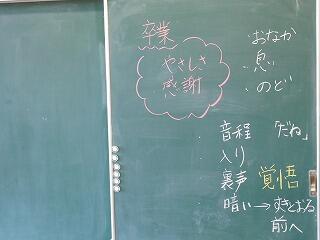 卒業
やさしさ
感謝
・おなか
・息
・のど
・音程 「だね」
・入り
・裏声 覚悟
・暗い→すきとおる
前へ